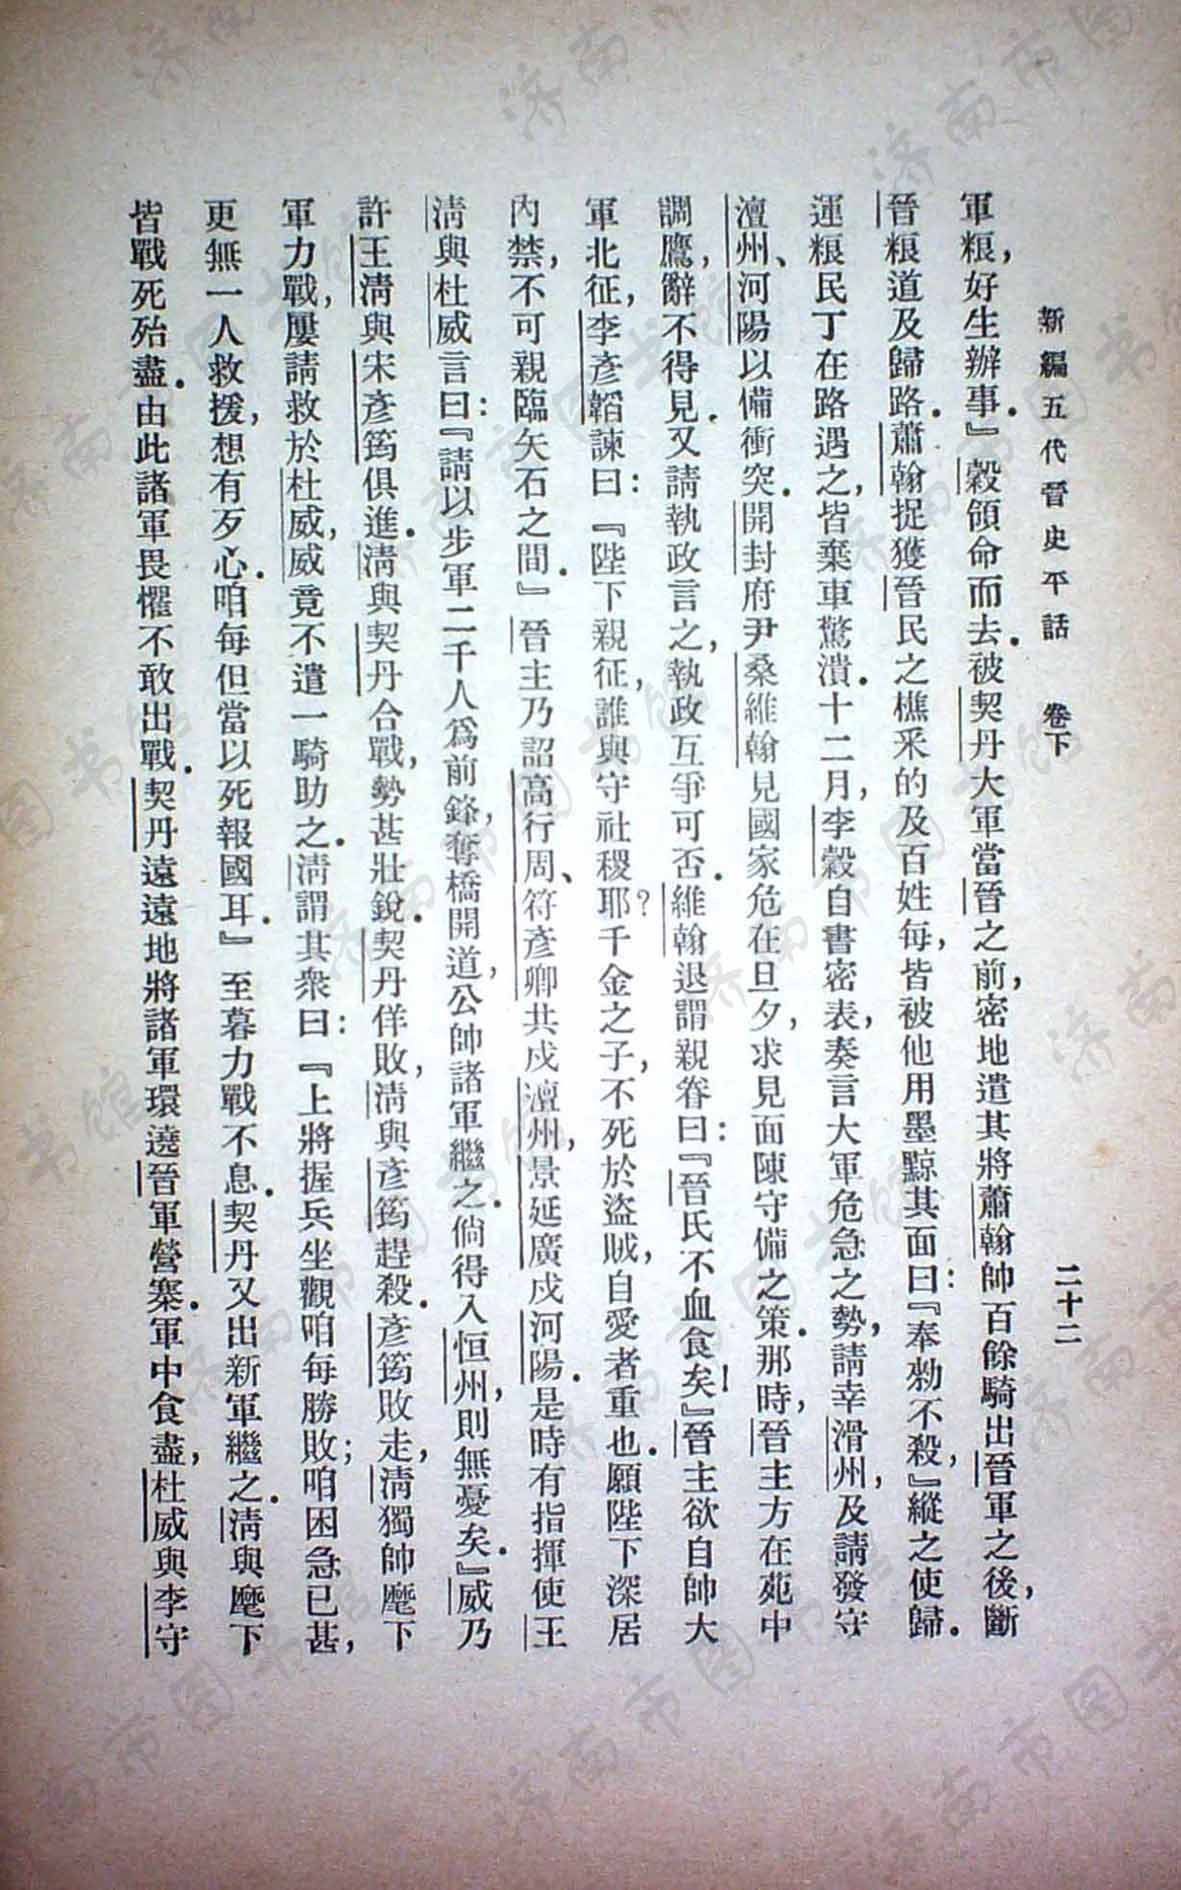 新編五代晉史平話　卷下　二十二
軍粮，好生辦事。』穀領命而去。被契丹大軍當晉之前，密地遣其將蕭翰帥百餘騎出晉軍之後，斷
晉粮道及歸路。蕭翰捉獲晉民之樵采的及百姓每，皆被他用墨黥其面曰：『奉勑不殺，』縱之使歸。
運粮民丁在路遇之，皆棄車驚潰。十二月，李穀自書密表，奏言大軍危急之勢，請幸滑州，及請發守
澶州、河陽以備衝突。開封府尹桑維翰見國家危在旦夕，求見面陳守備之策。那時，晉主方在苑中
調鷹，辭不得見。又請執政言之，執政互爭可否。維翰退謂親眷曰：『晉氏不血食矣！』晉主欲自帥大
軍北征，李彥韜諫曰：『陛下親征，誰與守社稷耶？千金之子，不死於盜賊，自愛者重也。願陛下深居
內禁，不可親臨矢石之間。』晉主乃詔高行周、符彥卿共戍澶州，景延廣戍河陽。是時有指揮使王
清與杜威言曰：『請以步軍二千人爲前鋒，奪橋開道，公帥諸軍繼之。倘得入恒州，則無憂矣。』威乃
許王清與宋彥筠俱進。清與契丹合戰，勢甚壯銳。契丹佯敗，清與彥筠趕殺。彥筠敗走，清獨帥麾下
軍力戰，屢請救於杜威，威竟不遣一騎助之。清謂其衆曰：『上將握兵坐觀咱每勝敗；咱困急已甚，
更無一人救援，想有歹心。咱每但當以死報國耳。』至暮力戰不息。契丹又出新軍繼之。清與麾下
皆戰死殆盡。由此諸軍畏懼不敢出戰。契丹遠遠地將諸軍環遶晉軍營寨。軍中食盡，杜威與李守
濟南市图书馆